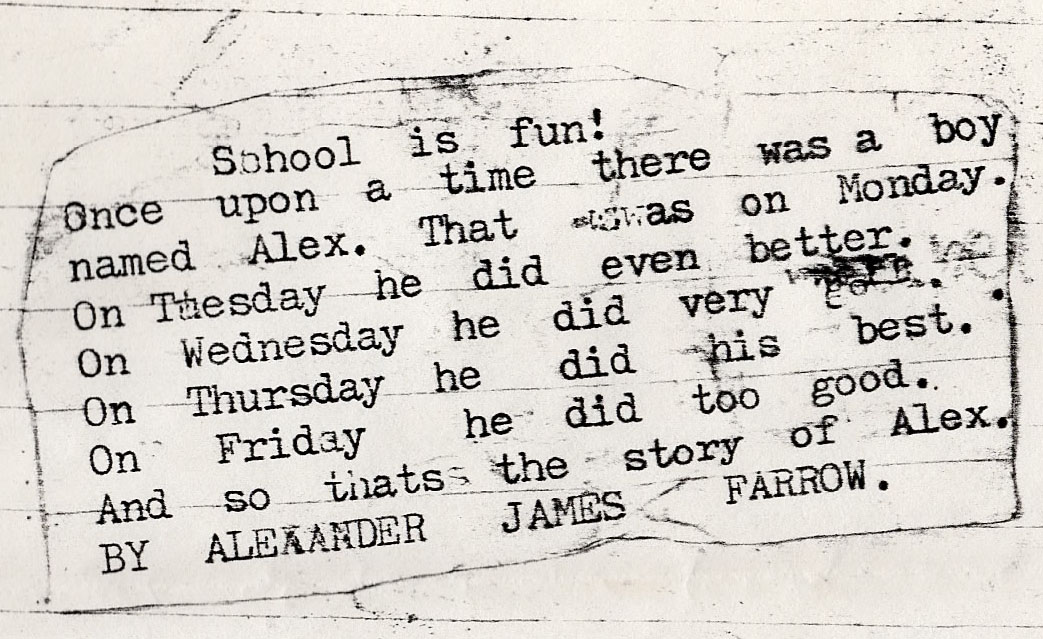 School is fun!
Once upon a time there was a boy
named Alex. That was on Monday.
On Tuesday he did even better.
On Wednesday he did very
On Thursday he did his best.
On Friday he did too good.
And so thats the story of Alex.
BY ALEXANDER JAMES FARROW.